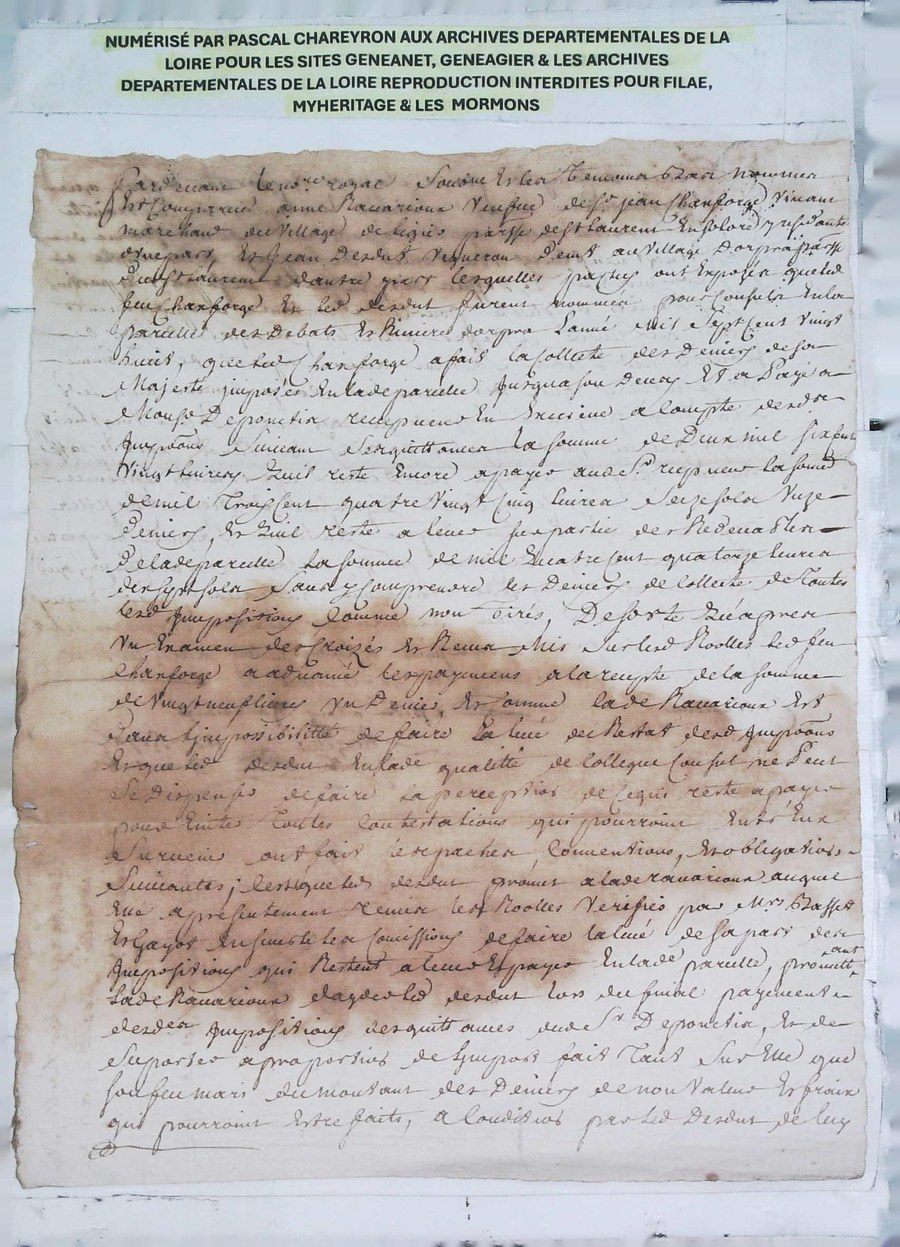 NUMÉRISÉ PAR PASCAL CHAREYRON AUX ARCHIVES DEPARTEMENTALES DE LA
LOIRE POUR LES SITES GENEANET, GENEAGIER & LES ARCHIVES
DEPARTEMENTALES DE LA LOIRE REPRODUCTION INTERDITES POUR FILAE,
MYHERITAGE & LES MORMONS
Pardevant le no.re royal Soubné Et les Temoins bas nommés
Est Comparue anne Ravarioux veufve de Sr jean Chanforge vivant
marchand du village de parsse de St Laurent En solore
d'unepart, Et jean Desdut vigneron dem.t au village Dorpra parsse
Dud St Laurent dautre part lesquelles parties ont Exposés queled
feu Chanforge Et led desdut furent nommés pour Consuls En la
parcelle des Debats Et Riviere dorpra L'année mil Sept Cent vingt
huit, que led Chanforge a fait la Collecte des Deniers de Sa
Majesté jmposés En lade parcelle jusqua son Deces Et a Payé a
Mons.r Deponctin recepveur En Exercice a Compte desd.
jmpõons Suivant Ses quittances La somme de Deux mil six Cent
vingt livres, quil reste Encore a payer aud Sr recepveur la somme
de mil Trois Cent quatre vingt Cinq livres Seize sols unze
Deniers, Et quil reste a lever sur partie des Redevables
De lade parcelle La somme de mil quatre Cent quatorze livres
dix sept sols Sans y Comprendre les Deniers de Collecte de Toutes
lesd jmpositions Comme non Tirés, De sorte qu'apres
un Examen des Croisés Et Remis sur lesd Roolles led feu
Chanforge a les payemens a la recepte de la somme
de vingt neuf livres un Denier, Et comme lade Ravarioux Est
Dans Limpossibilitté de faire La levé du Restat desd jmpõons
Et que led desdut En lade qualitté de Collegue Consul ne Peut
Se Dispenser de faire La perception de Ce qui reste a payer
pour Eviter Touttes Contestations qui pourroint Entre Eux
Survenir ont fait les paches, Conventions, Et obligations
Suivantes; C'est que led desdut promet a lade ravarioux
a présentement remis les Roolles verifiés par Mrs Basset
Et Gayot Ensemble les Comissions de faire la levé de sa part des
jmpositions qui Restent a lever Et payer En lade parcelle, promettant
Lade Ravarioux dayder led desdut lors du final payement
desdes jmpositions des quittances dud Sr Deponctin, Et de
Suporter a proportion de Limport fait Tant Sur Elle que
son feu mari du montant des Deniers de non valeur Et fraix
qui pourroint Estre faits, a Condition par led Desdut de luy